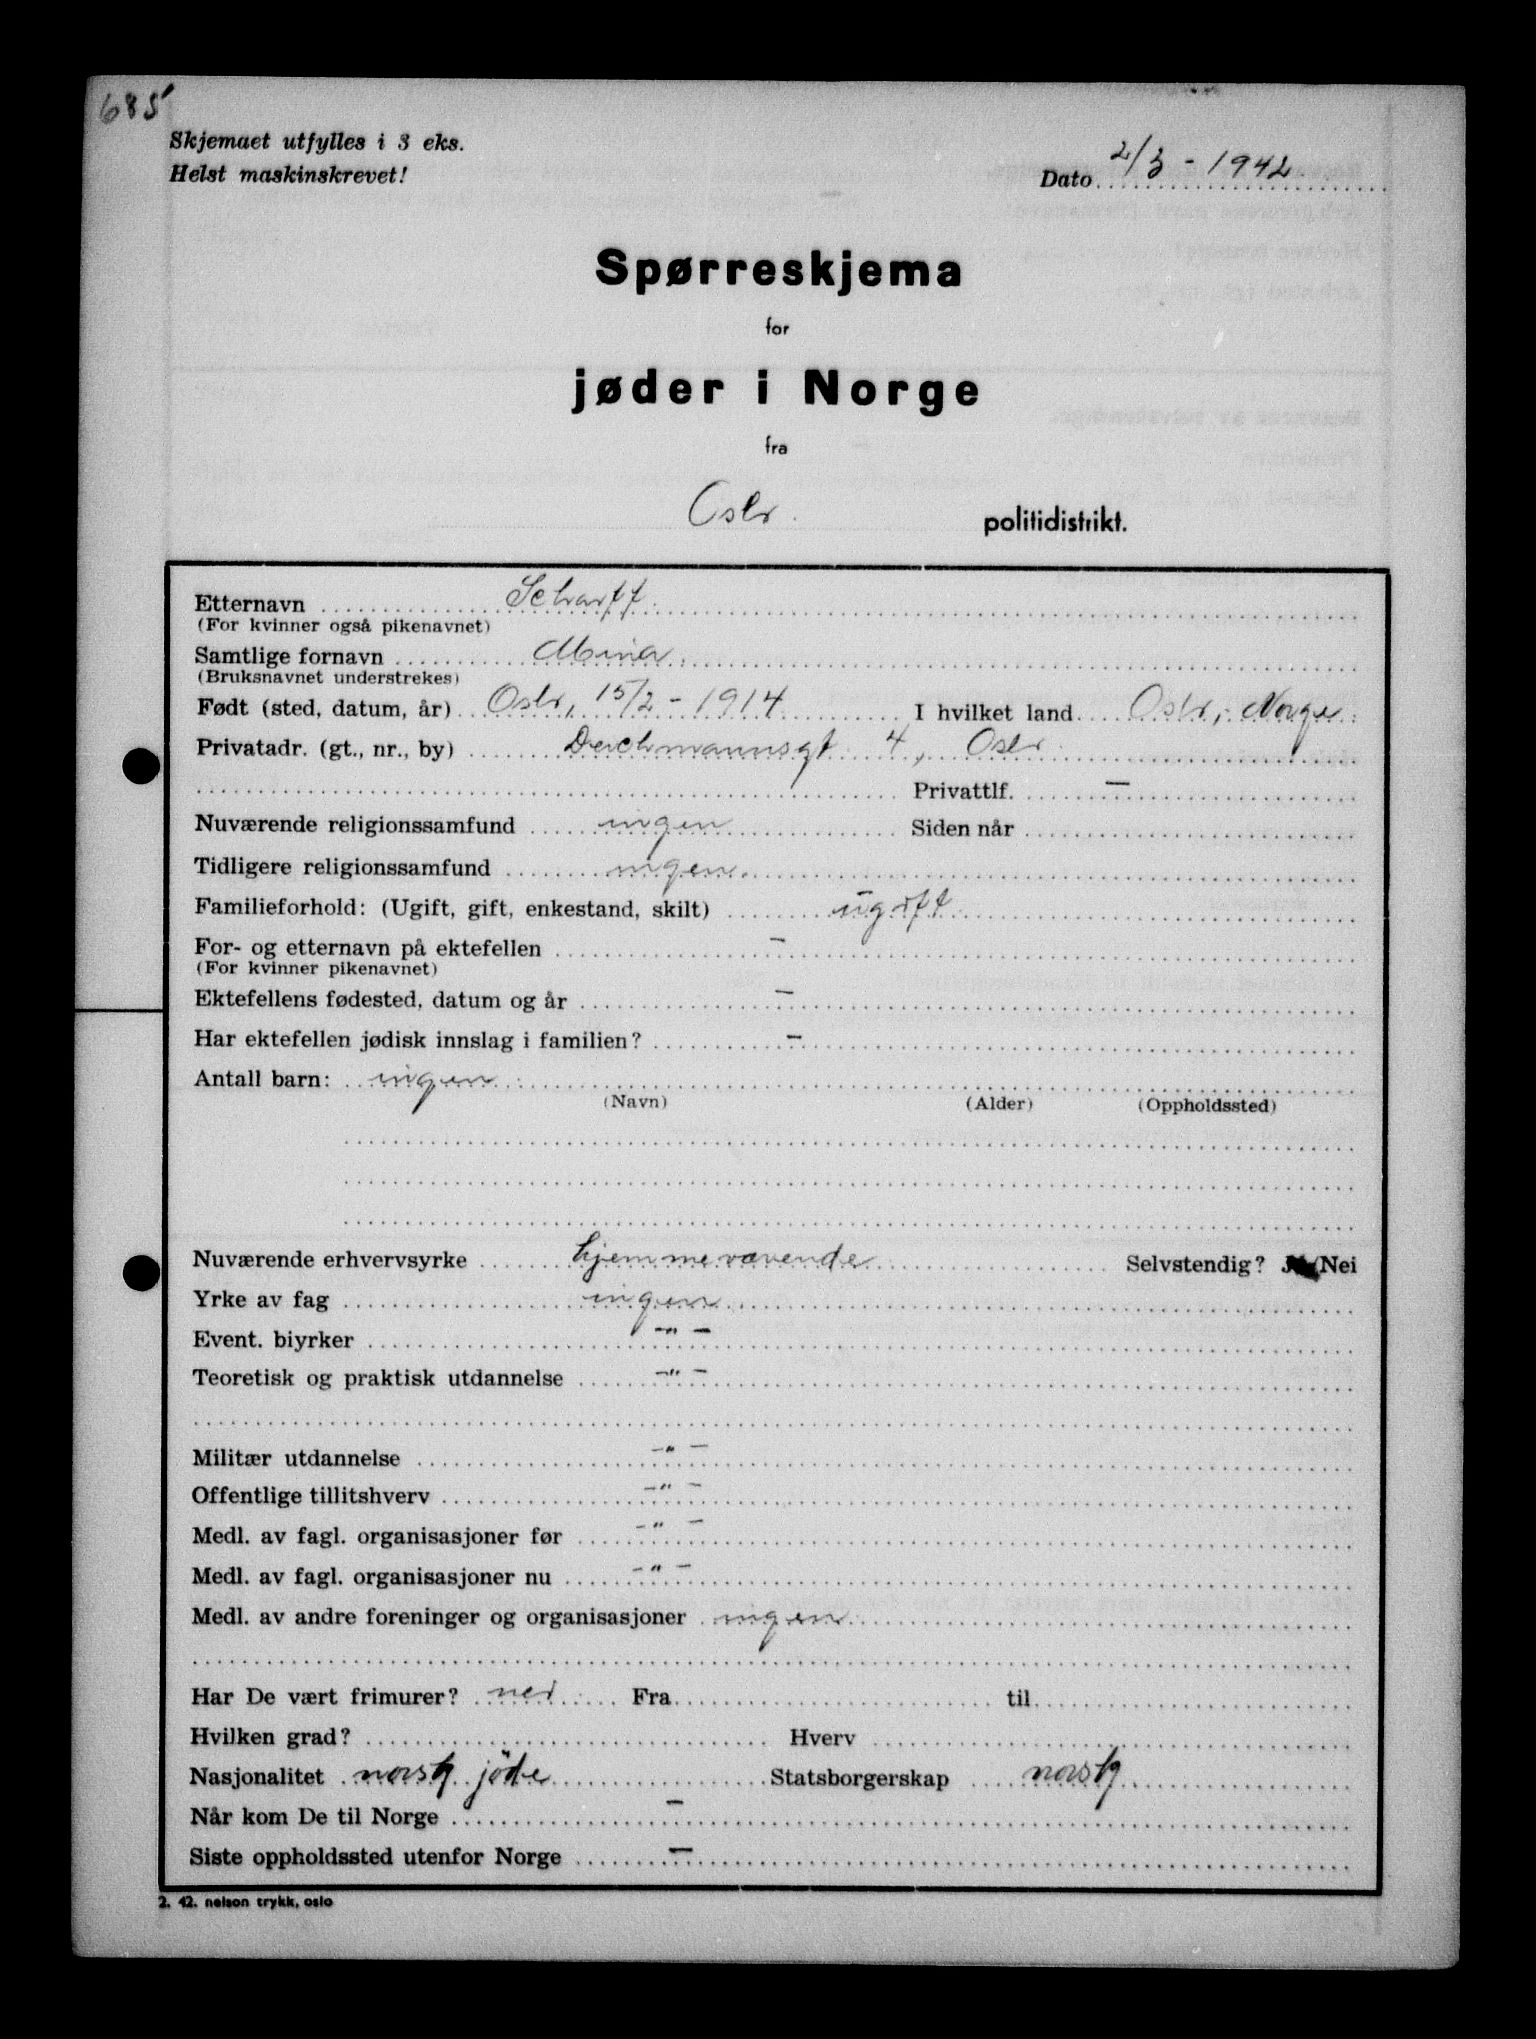 685
Skjemaet utfylles i 3 eks.
Helst maskinskrevet!
Dato 2/3 - 1942
Spørreskjema
for
jøder i Norge
fra
Oslo politidistrikt.
Etternavn Scharff
(For kvinner også pikenavnet)
Samtlige fornavn Mina
(Bruksnavnet understrekes)
Født (sted, datum, år) Oslo, 15/2 - 1914 I hvilket land Oslo, Norge
Privatadr. (gt., nr., by) Deichmannsgt 4, Oslo
Privattlf. —
Nuværende religionssamfund ingen Siden når
Tidligere religionssamfund ingen
Familieforhold: (Ugift, gift, enkestand, skilt) ugift
For- og etternavn på ektefellen —
(For kvinner pikenavnet)
Ektefellens fødested, datum og år —
Har ektefellen jødisk innslag i familien? —
Antall barn: ingen
(Navn) (Alder) (Oppholdssted)
Nuværende erhvervsyrke hjemmeværende Selvstendig? Nei
Yrke av fag ingen
Event. biyrker —"—
Teoretisk og praktisk utdannelse —"—
Militær utdannelse —"—
Offentlige tillitshverv —"—
Medl. av fagl. organisasjoner før —"—
Medl. av fagl. organisasjoner nu —"—
Medl. av andre foreninger og organisasjoner ingen
Har De vært frimurer? nei Fra til
Hvilken grad? Hverv
Nasjonalitet norsk jøde Statsborgerskap norsk
Når kom De til Norge —
Siste oppholdssted utenfor Norge —
2. 42. nelson trykk, oslo